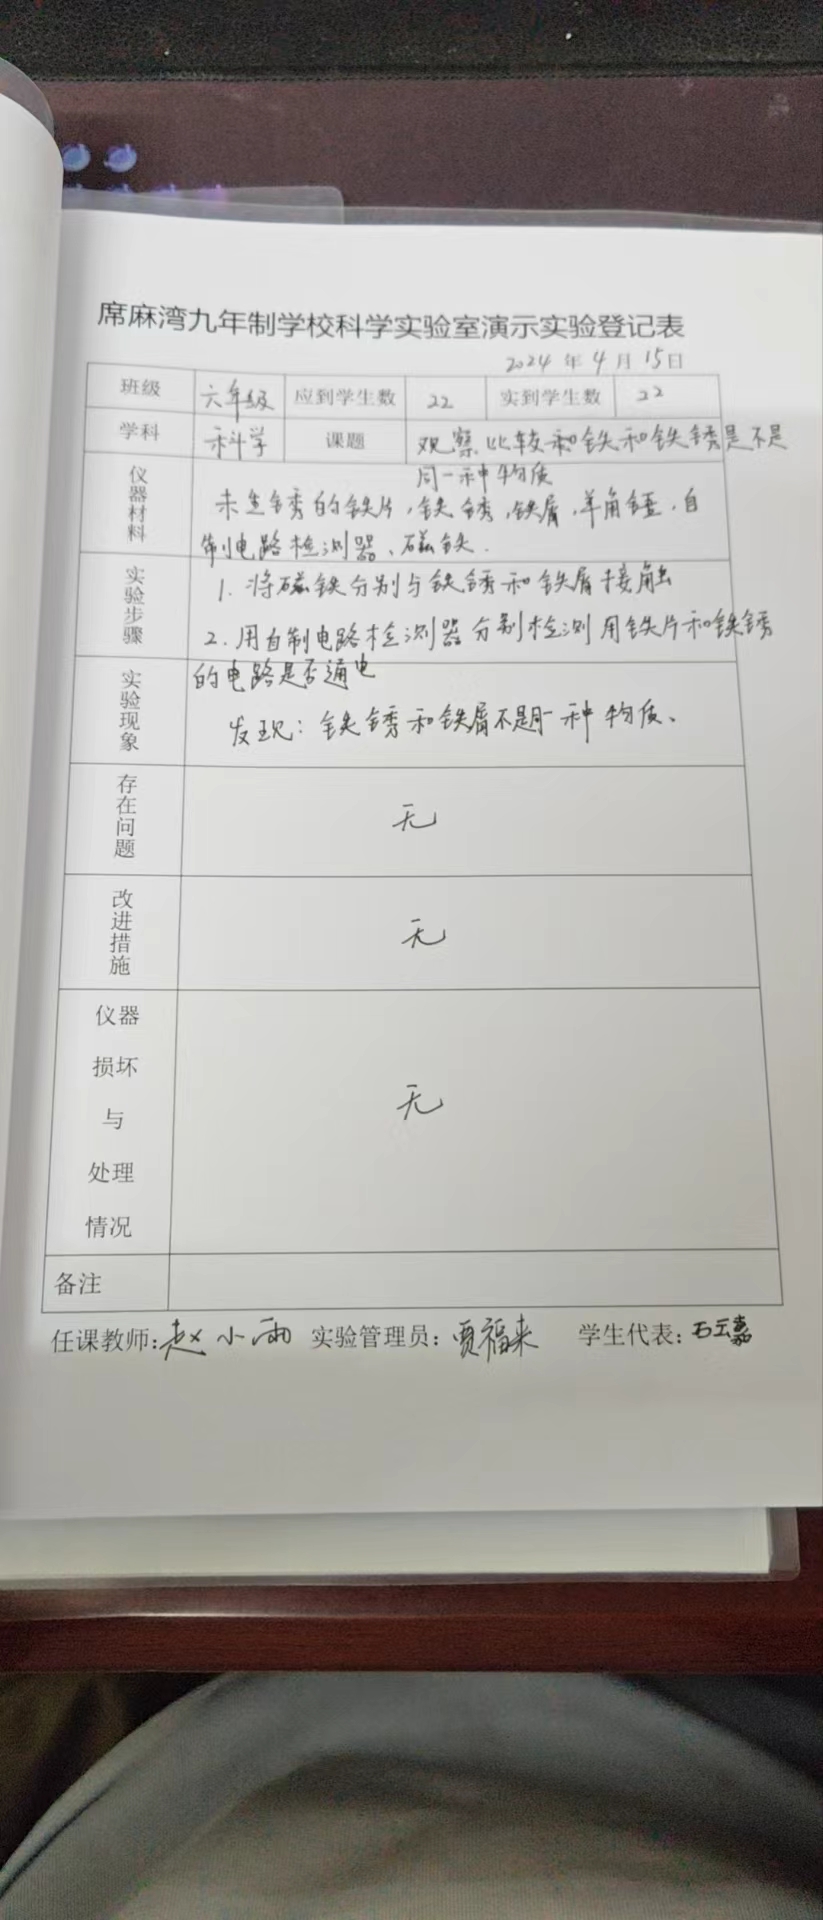 席麻湾九年制学校科学实验室演示实验登记表
2024 年 4 月 15 日
班级 六年级 应到学生数 22 实到学生数 22
学科 科学 课题 观察比较和铁和铁锈是不是
同一种物质
仪器材料 未生锈的铁片，铁锈，铁屑，羊角锤，自
制电路检测器、磁铁.
实验步骤 1. 将磁铁分别与铁锈和铁屑接触
2. 用自制电路检测器分别检测用铁片和铁锈
的电路是否通电
实验现象 发现：铁锈和铁屑不是同一种物质、
存在问题 无
改进措施 无
仪器
损坏
与 无
处理
情况
备注
任课教师：赵小雨 实验管理员：贾福来 学生代表：石云嘉